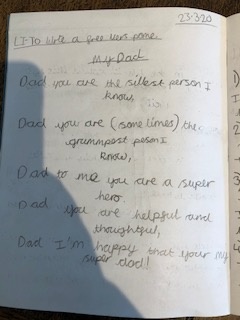 23.3.20
LI-To write a free vers pome.
My Dad
Dad you are the silliest person I
know,
Dad you are (some times) the
grummpest peson I
know,
Dad to me you are a super
hero.
Dad you are helpful and
thoughtful,
Dad I'm happy that your my
super dad!